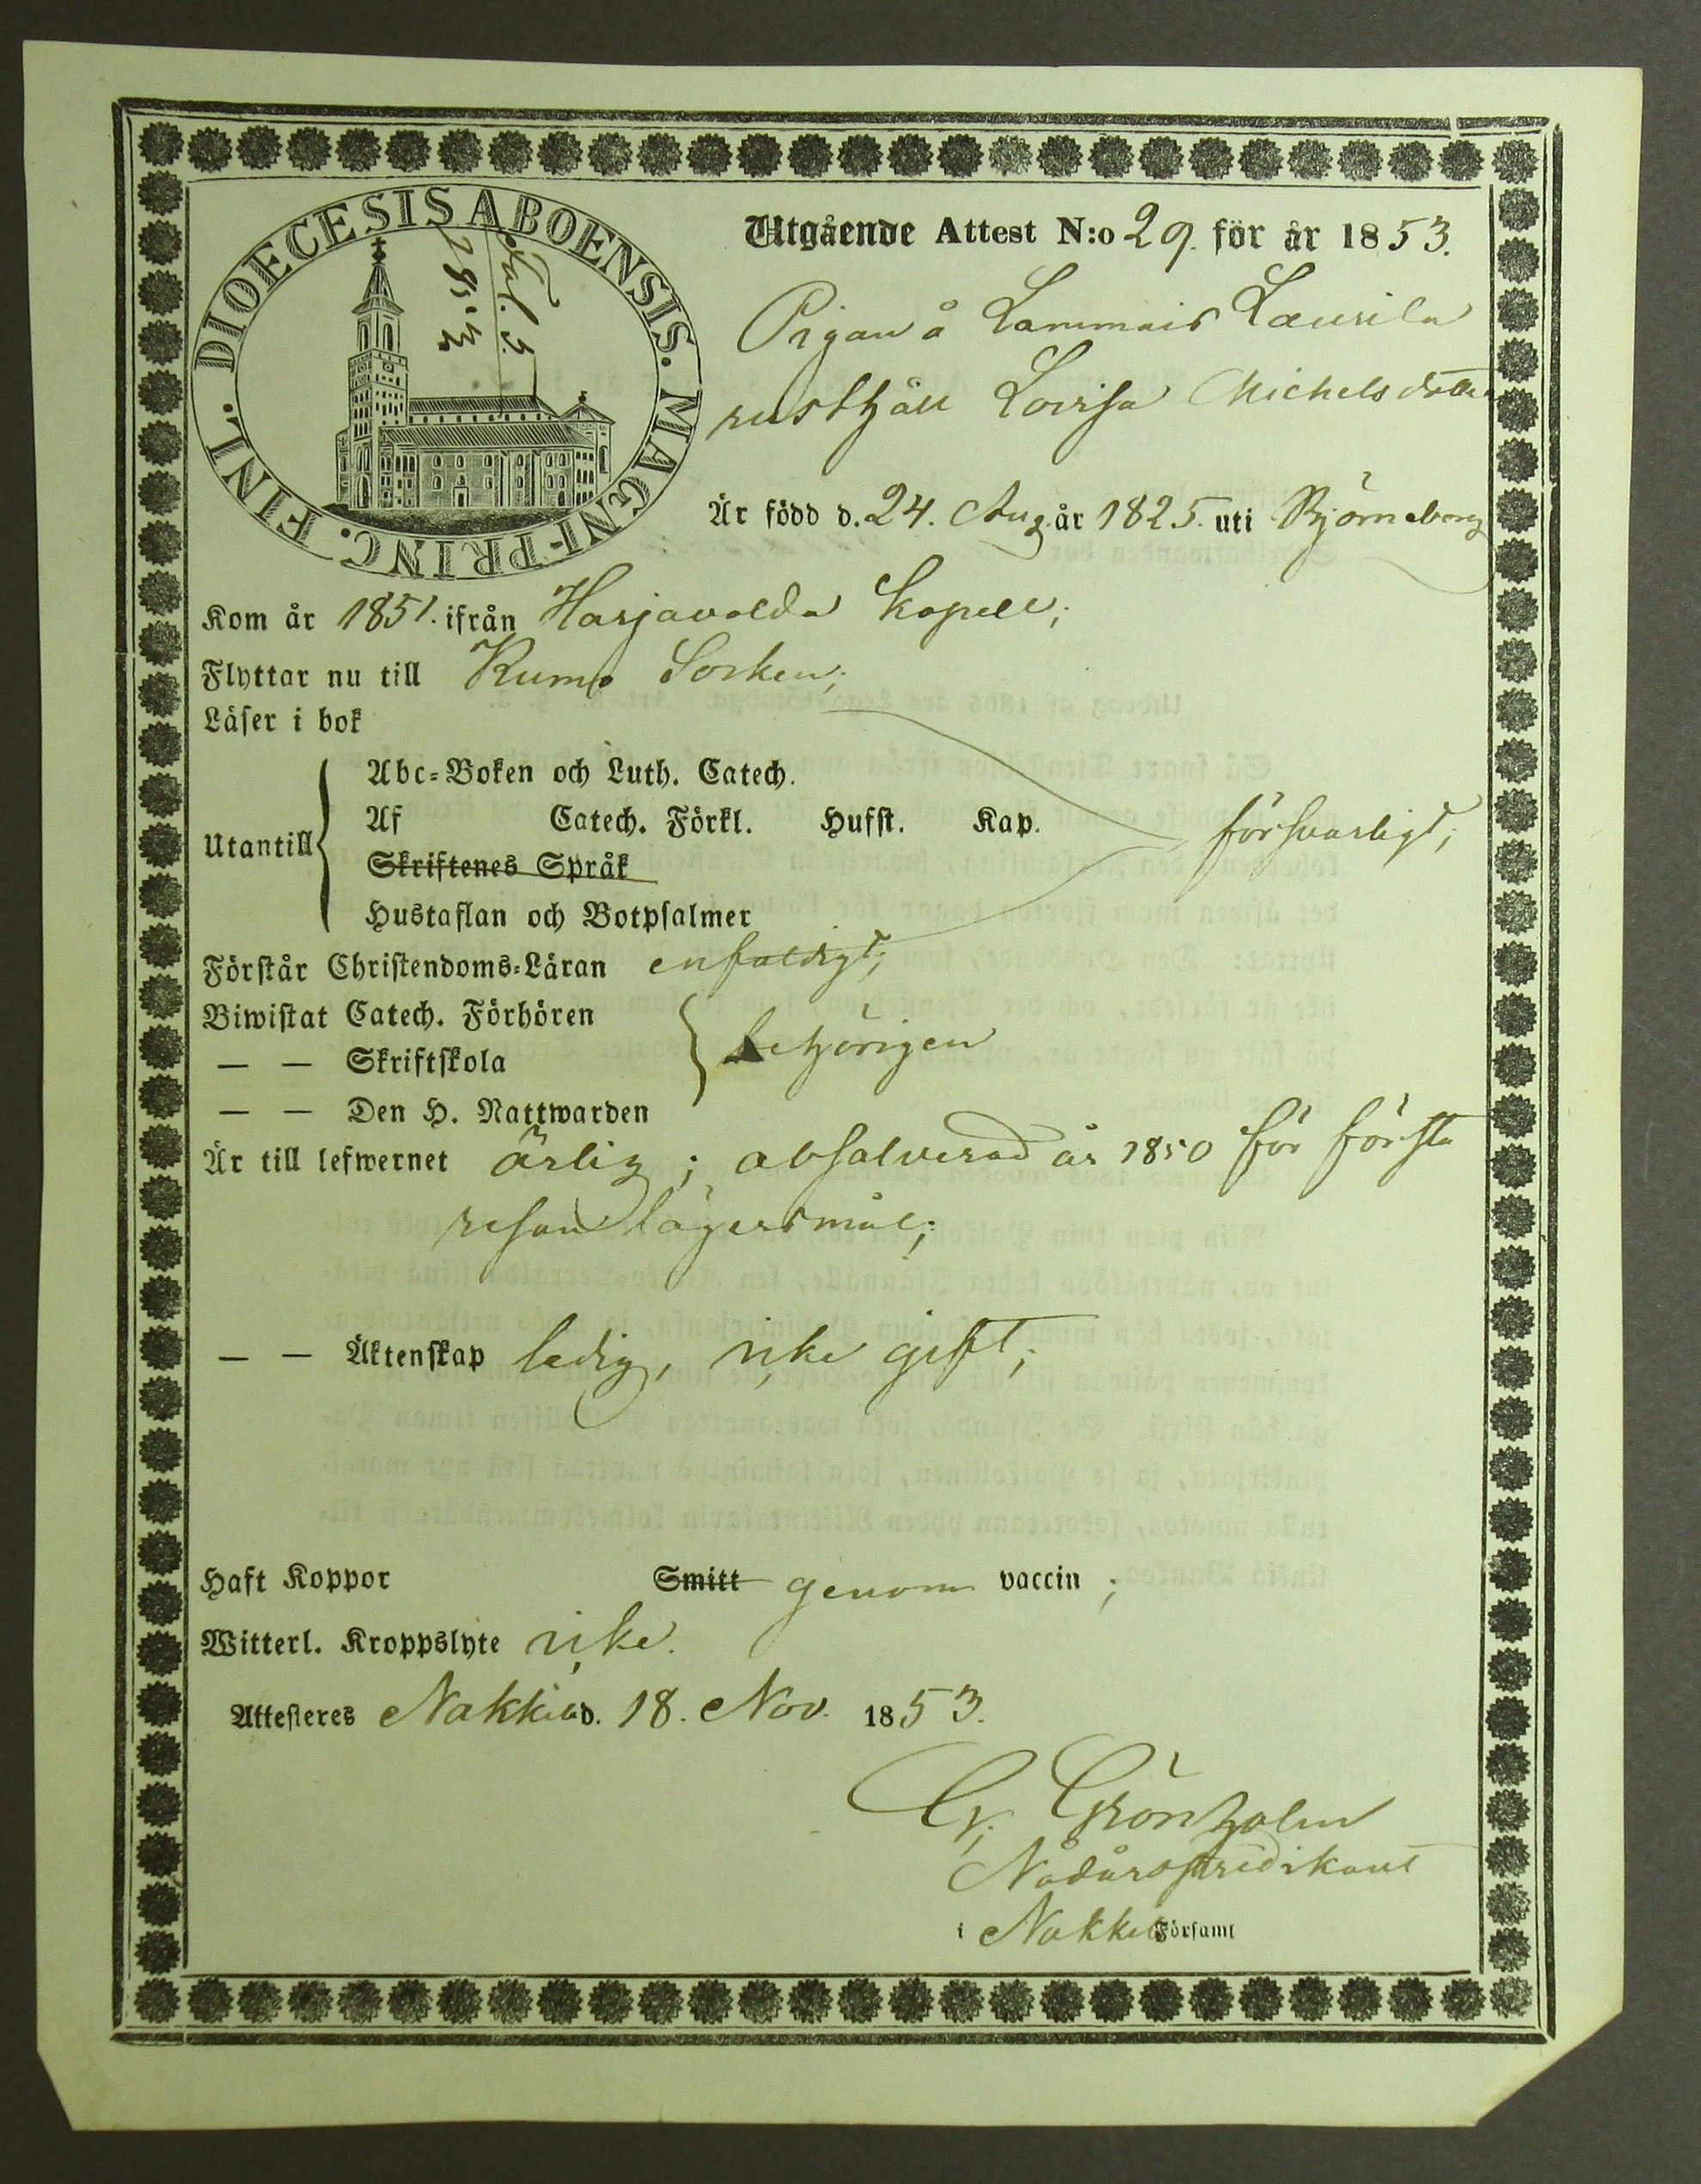 DIOECESIS ABOENSIS. MAGNI-PRINC. FINL.
Utgående Attest N:o 29. för år 1853.
Pigan å Lammais Laurila
rusthåll Lovisa Michelsdotter
Är född d. 24. Aug. år 1825. uti Björneborg
Kom år 1851. ifrån Harjavalda Kapell;
Flyttar nu till Kumo Socken;
Läser i bok
Abc-Boken och Luth. Catech.
Af Catech. Förkl. Husst. Kap. försvarligt;
Utantill
Skriftenes Språk
Hustaflan och Botpsalmer
Förstår Christendoms-Läran enfaldigt;
Biwistat Catech. Förhören
— — Skriftskola behörigen
— — Den H. Nattwarden
Är till lefwernet ärlig; absolverad år 1850 för första
resan lägersmål;
— — Äktenskap ledig, icke gift;
Haft Koppor Smitt genom vaccin;
Witterl. Kroppslyte icke.
Attesteres Nakkila d. 18. Nov. 1853.
Grönholm
Nådårspredikant
i Nakkila Församl